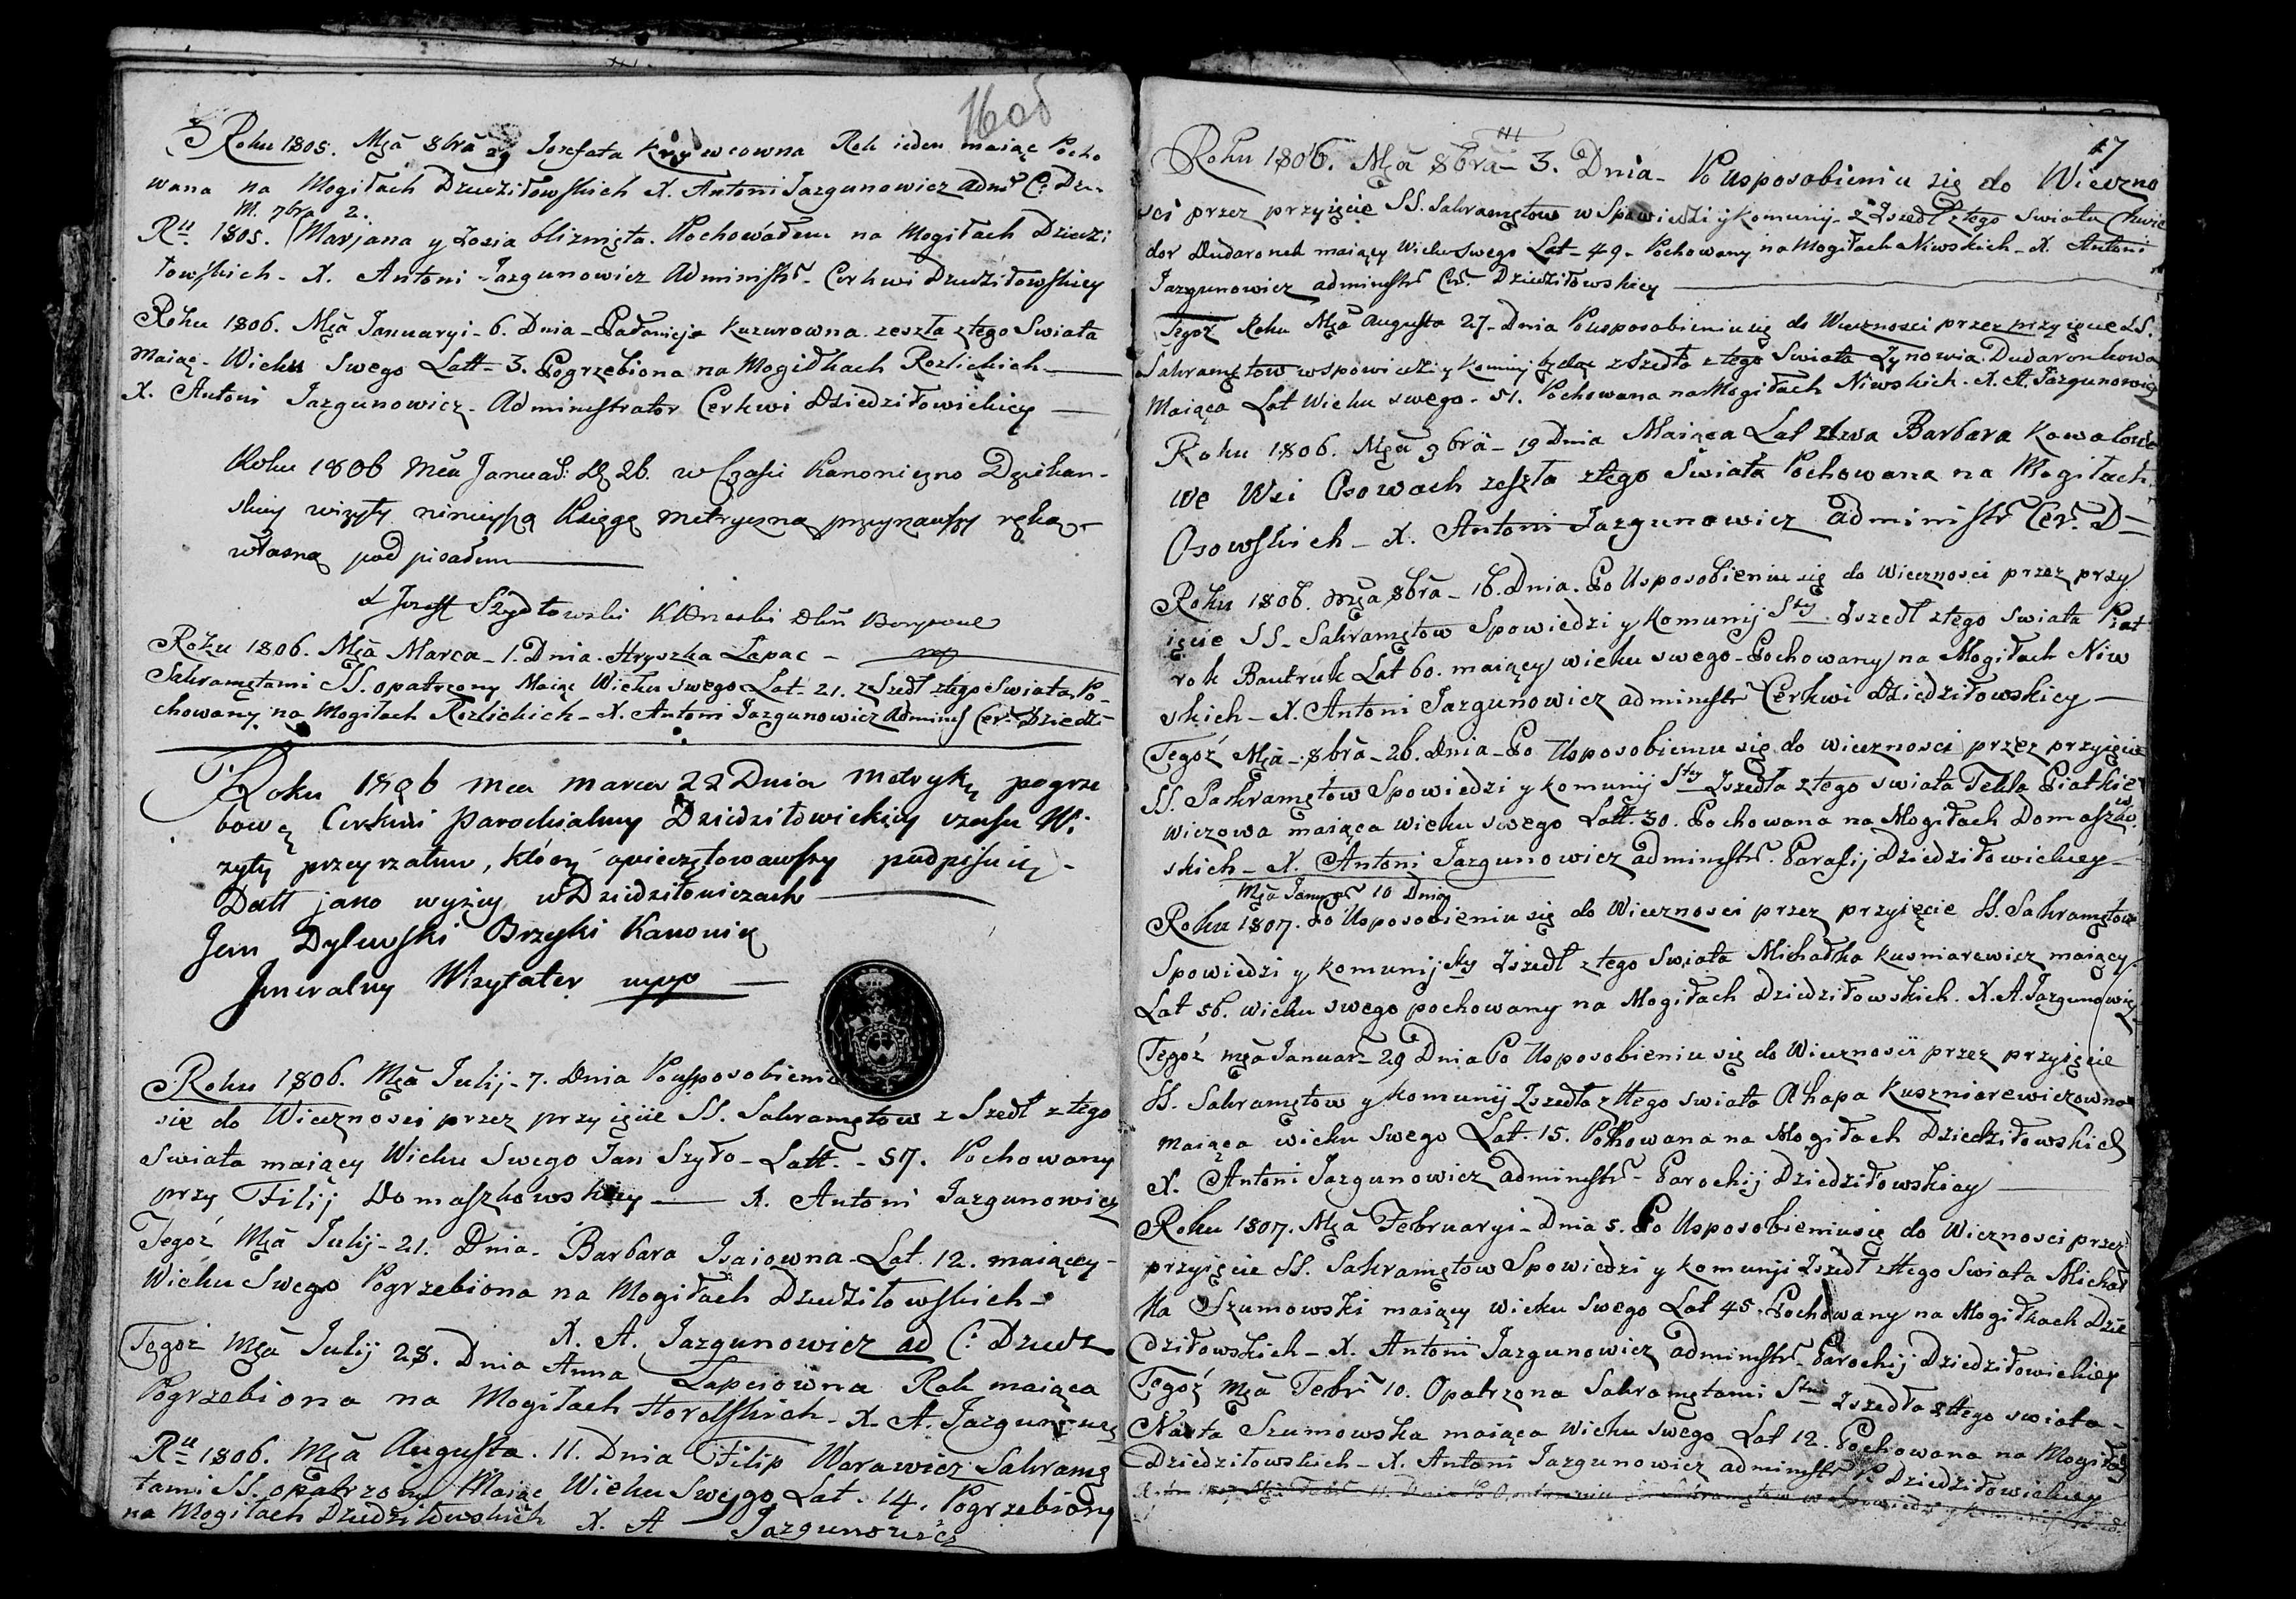 16 об
Roku 1805. Mca 8bra 29 Jozefata Krywcowna Rok ieden maiąc Pocho
wana na Mogiłach Dziedziłowskich X. Antoni Jazgunowicz Admi C: Dzi-
M. 7bra 2.
Ru 1805. Marjana y Zosia bliznięta. Pochowałem na Mogiłach Dziedzi
łowskich - X. Antoni Jazgunowicz Administr. Cerkwi Dziedziłowskiey
Roku 1806. Mca Januaryi - 6. Dnia - Pałanieja Kazurowna zeszła z tego Swiata
Maiąc - Wieku Swego Latt - 3. Pogrzebiona na Mogiłkach Rozlickich
X. Antoni Jazgunowicz - Administrator Cerkwi Dziedziłowickiey
Roku 1806 mca Januar: 26. w Czasie Kanoniczno Dziekan-
skiey wizyty ninieyszą Księgę metryczną przeyzawszy ręką
własną podpisałem
X Jozeff Szydłowski
Roku 1806. Mca Marca - 1. Dnia. Hryszka Łapac - mp
Sakramętami SS. opatrzony Maiąc Wieku swego Lat - 21. z Szedł z tego Swiata Po-
chowany na Mogiłach Rozlickich - X. Antoni Jazgunowicz Adminis Cer. Dziedzi-
Roku 1806 mca marca 22 Dnia metrykę pogrze
bową Cerkwi Parochialney Dziedziłowickiey czasu Wi
zyty przeyrzałem, którę opieczętowawszy podpisuię -
Datt jako wyżey w Dziedziłowiczach
Jan Dylewski Brzyski Kanonik
Jeneralny Wizytator mpp
Roku 1806. Mca Julij - 7. Dnia Po usposobieniu
się do Wieczności przez przyięcie SS. Sakramętow z Szedł z tego
Swiata maiący Wieku Swego Jan Szyło - Latt. - 57. Pochowany
przy Filij Domaszkowskiey - X. Antoni Jazgunowicz
Tegoż Mca Julij - 21. Dnia - Barbara Isaiowna - Lat. 12. maiącey -
Wieku Swego Pogrzebiona na Mogiłach Dziedziłowskich -
X. A. Jazgunowicz ad C: Dziedz
Tegoż Mca Julij 28. Dnia Anna Łapciowna Rok maiąca
Pogrzebiona na Mogiłach Horelskich - X. A. Jazgunowicz
Ru 1806. Mca Augusta. 11. Dnia Filip Warawicz Sakramę
tami SS. opatrzony Maiąc Wieku Swego Lat. 14. Pogrzebiony
na Mogiłach Dziedziłowskich X. A Jazgunowicz
17
Roku 1806. Mca 8bra - 3. Dnia - Po usposobieniu się do Wieczno
ści przez przyięcie SS. Sakramętow w Spowiedzi y komunij - z Iszedł z tego Swiata Chwie
dor Dudaronek maiący Wieku Swego Lat - 49. Pochowany na Mogiłach Niwskich - X. Antoni
Jazgunowicz administr Cer. Dziedziłowskiey
Tegoż Roku Mca Augusta 27. Dnia Po usposobieniu się do Wieczności przez przyięcie SS.
Sakramętow w spowiedzi y komunij będąc z Szedła z tego Swiata Zynowia Dudaronkowa
Maiąca Lat Wieku swego - 51. Pochowana na Mogiłach Niwskich. X. A. Jazgunowicz
Roku 1806. Mca 9bra - 19 Dnia Maiąca Lat dwa Barbara Kowalowa
we Wsi Osowach zeszła z tego Swiata Pochowana na Mogiłach
Osowskich - X. Antoni Jazgunowicz administr Cer. D -
Roku 1806. Mca 8bra - 16. Dnia. Po Usposobieniu się do wieczności przez przy
ięcie SS. Sakramętow Spowiedzi y komunij Stey Iszedł z tego swiata Piat
rok Bautruk Lat 60. maiący wieku swego - Pochowany na Mogiłach Niw
skich - X. Antoni Jazgunowicz administr Cerkwi Dziedziłowskiey
Tegoż Mca - 8bra - 26. Dnia - Po Usposobieniu się do wieczności przez przyięcie
SS. Sakramętow Spowiedzi y komunij Stey Iszedła z tego swiata Tekla Piatkie
wiczowa maiąca wieku swego Latt. 30. Pochowana na Mogiłach Domaszkow
skich - X. Antoni Jazgunowicz administr. Parafij Dziedziłowickiey
Mca Januar 10 Dnia
Roku 1807. Po Usposobieniu się do Wieczności przez przyięcie SS. Sakramętow
Spowiedzi y komunij Stey Iszedł z tego Swiata Michałka Kusniarewicz maiący
Lat 56. wieku swego pochowany na Mogiłach Dziedziłowskich. X. A. Jazgunowicz
Tegoż mca Januar - 29 Dnia Po Usposobieniu się do Wieczności przez przyięcie
SS. Sakramętow y komunij Iszedła z ttego swiata Ahapa Kuszniarewiczowna
maiąca wieku Swego Lat. 15. Pohowana na Mogiłach Dziedziłowskich
X. Antoni Jazgunowicz administr - Parochij Dziedziłowskiey
Roku 1807. Mca Februaryi - Dnia 5. Po Usposobieniu się do Wieczności przez
przyięcie SS. Sakramętow Spowiedzi y komunij Iszedł z ttego Swiata Michał
ka Szumowski maiący wieku Swego Lat 45. Pochowany na Mogiłkach Dzie
dziłowskich - X. Antoni Jazgunowicz administr - Parochij Dziedziłowickiey
Tegoż Mca Febr 10. Opatrzona Sakramętami Stmi Iszedła z ttego swiata -
Nasta Szumowska maiąca wieku Swego Lat 12. Pochowana na Mogiłach
Dziedziłowskich - X. Antoni Jazgunowicz administr P. Dziedziłowickiey